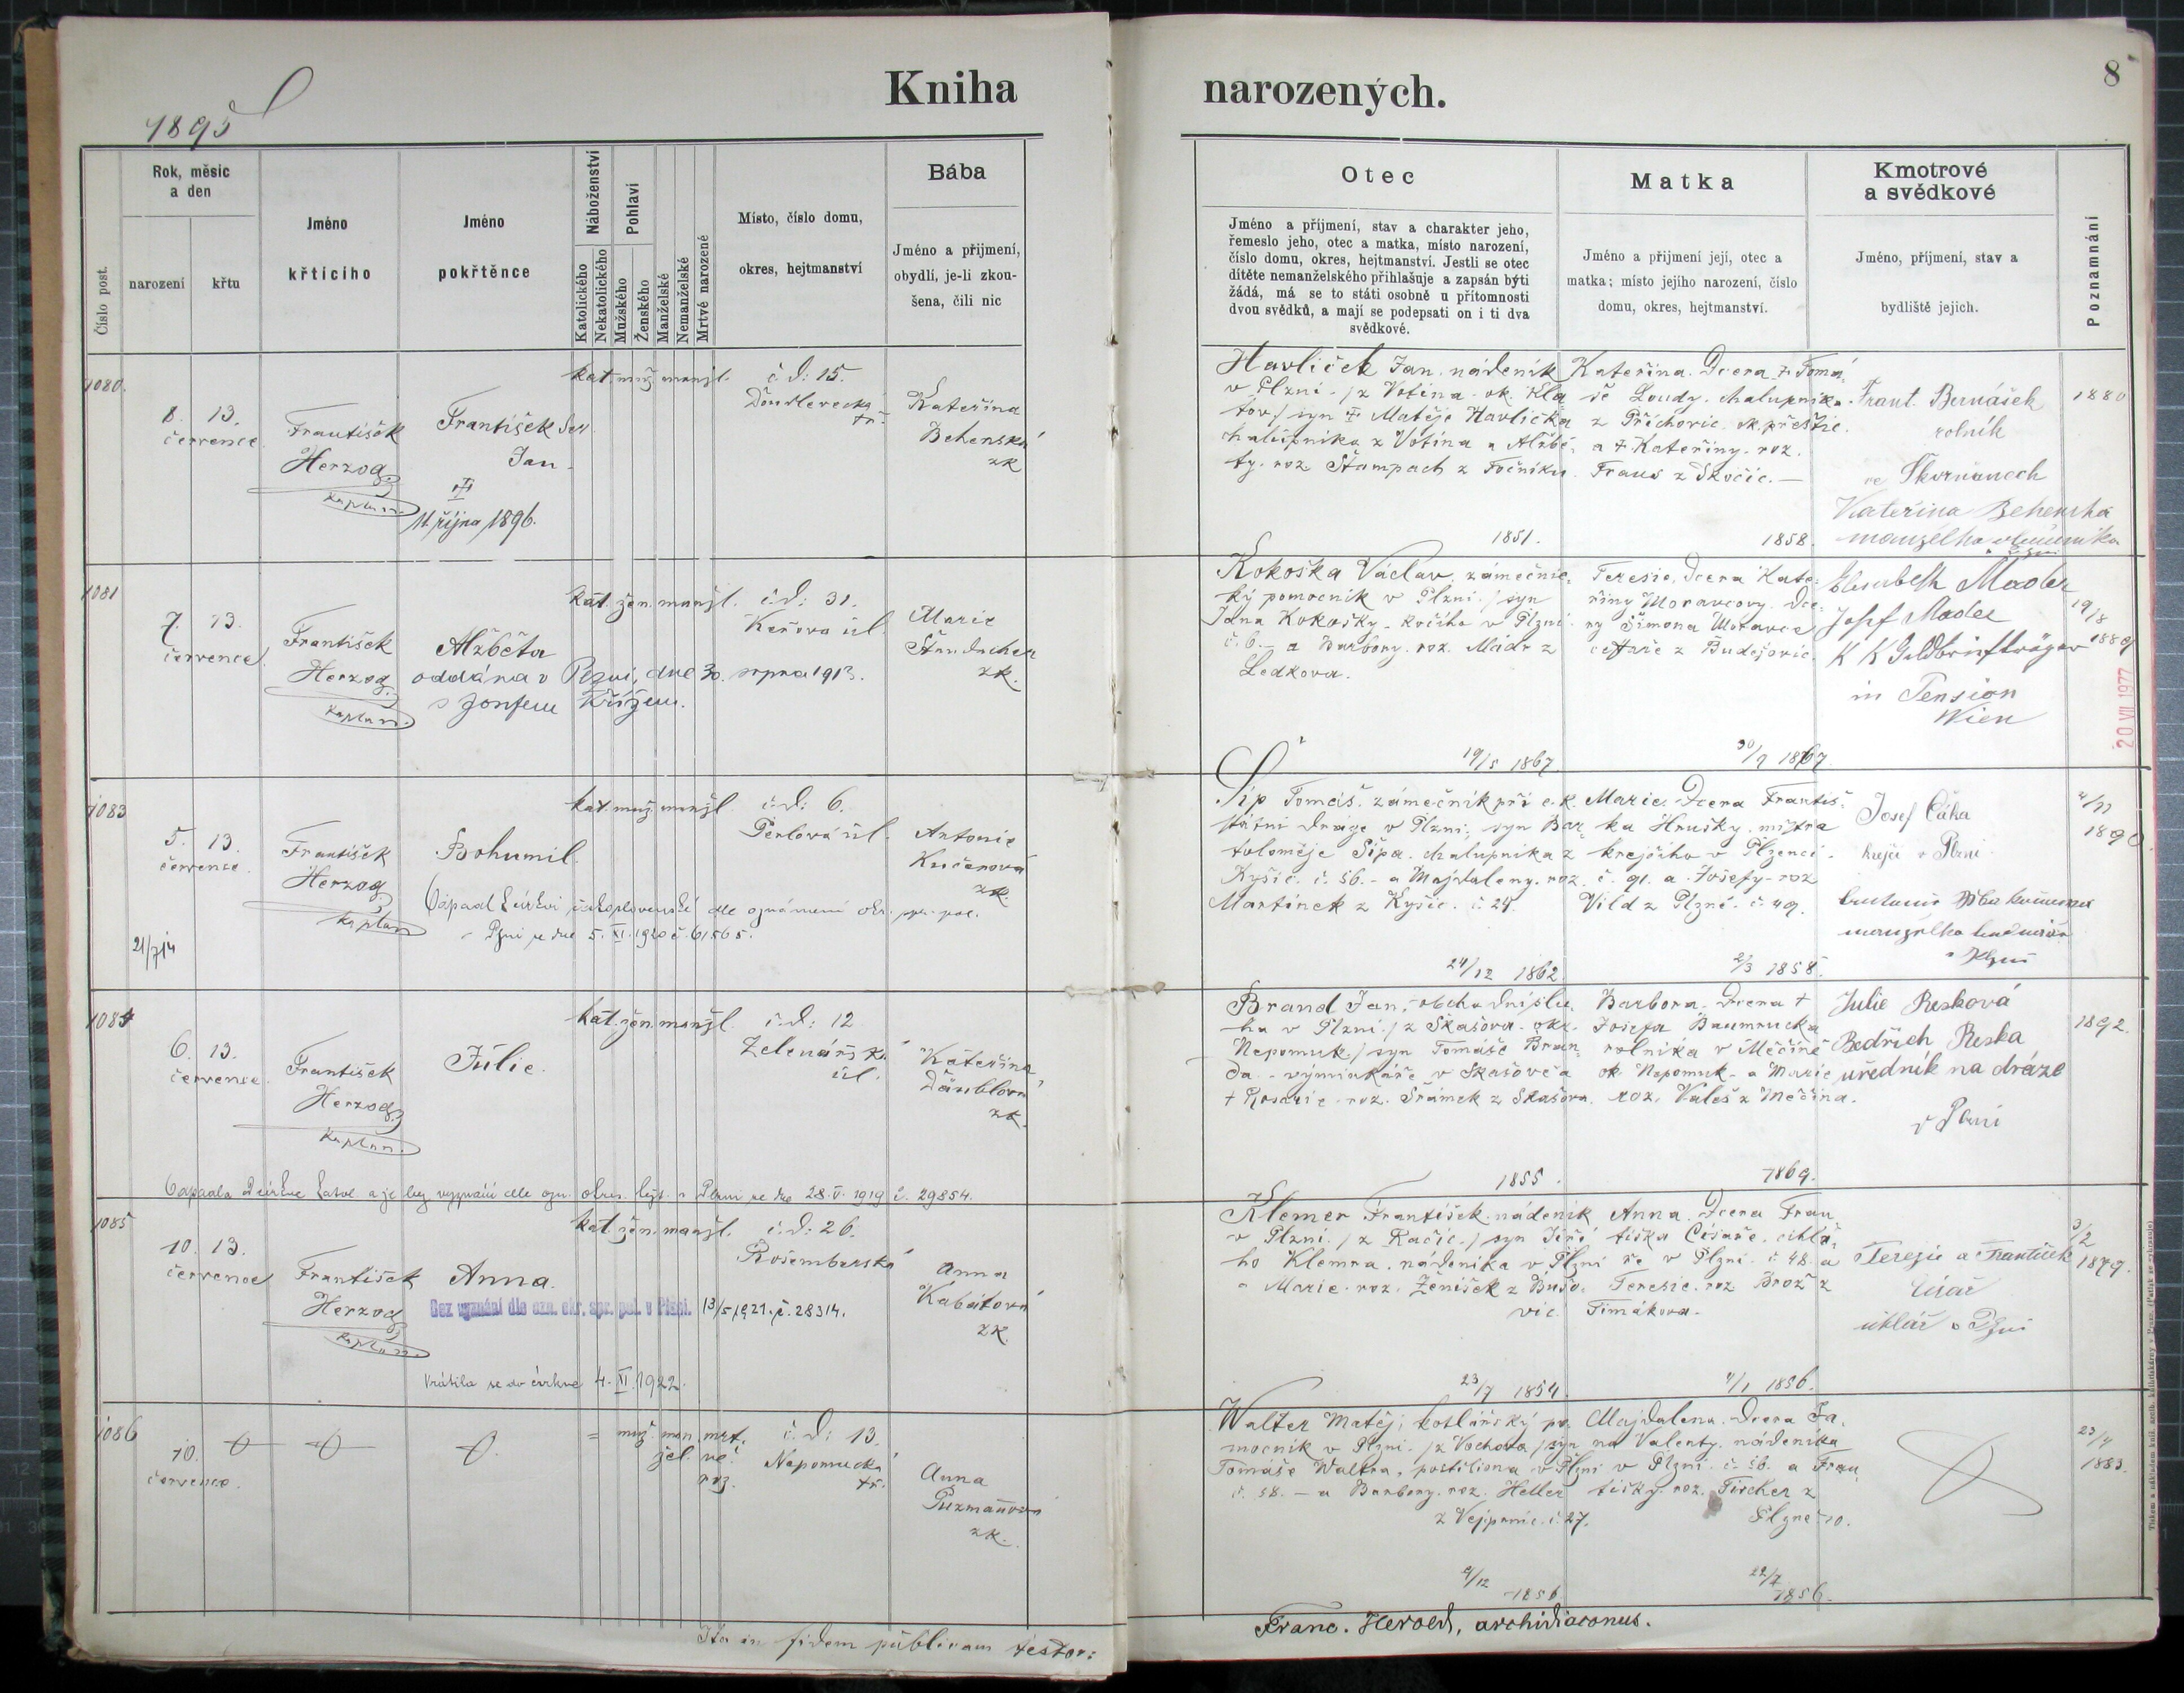 Kniha narozených.
8
1895
Číslo post.
Rok, měsíc
a den
narození
křtu
Jméno
křtícího
Jméno
pokřtěnce
Náboženství
Katolického
Nekatolického
Pohlaví
Mužského
Ženského
Manželské
Nemanželské
Mrtvě narozené
Místo, číslo domu,
okres, hejtmanství
Bába
Jméno a přijmení,
obydlí, je-li zkou-
šena, čili nic
Otec
Jméno a příjmení, stav a charakter jeho,
řemeslo jeho, otec a matka, místo narození,
číslo domu, okres, hejtmanství. Jestli se otec
dítěte nemanželského přihlašuje a zapsán býti
žádá, má se to státi osobně u přítomnosti
dvou svědků, a mají se podepsati on i ti dva
svědkové.
Matka
Jméno a přijmení její, otec a
matka; místo jejího narození, číslo
domu, okres, hejtmanství.
Kmotrové
a svědkové
Jméno, příjmeni, stav a
bydliště jejich.
Poznamnání
1080.
8. 13.
července.
František
Herzog
kaplan.
František
Jan
11. října 1896.
kat. muž. manžl.
č. d: 15.
Doudlevecká
tř.
Kateřina
Behenská
zk
Havlíček Jan. nádeník
v Plzni. / z Votína. ok. Kla
tov / syn Matěje Havlíčka
chalupníka z Votína a Alžbě-
ty. roz Štampach z Točníku.
1851.
Kateřina. Dcera † Tomá
še Loudy. chalupníka.
z Příchovic. ok. přeštic.
a † Kateřiny. roz.
Fraus z Skočic. —
1858.
Frant. Bernášek
rolník
ve Skvrňanech
Kateřina Behenska
manželka
1880
1081
7. 13.
července
František
Herzog
kaplan.
Alžběta
oddána v Plzni, dne 30. srpna 1913.
s Josefem Křížem.
kat. žen. manžl.
č. d: 31.
Keřova úl.
Marie
zk.
Kokoška Václav. zámečnic-
ký pomocník v Plzni. / syn
Jana Kokošky. kočího v Plzni
č. 6. — a Barbory. roz. Mádr z
Ledkova.
19/5 1867
Teresie. Dcera Kate-
řiny Moravcovy. Dce-
ry Šimona Moravce
z Budějovic.
30/9 1867
Elisabeth Mader
Josef Mader
K K Geldbriefträger
in Pension
Wien
19/8
1889
20 VII 1977
1083
5. 13.
července.
František
Herzog
kaplan
21/7 14
Bohumil.
Odpadl k církvi československé dle oznámení okr. spr. pol.
v Plzni ze dne 5. XI. 1920 č. 61565.
kat. muž. manžl
č. d: 6.
Perlová úl.
Antonie
Kučerová
zk.
Šíp Tomáš. zámečník při c. k.
státní dráze v Plzni; syn Bar
toloměje Šípa. chalupníka z
Kyšic. č. 56. — a Majdaleny. roz.
Martínek z Kyšic. č. 24.
24/12 1862.
Marie. Dcera Františ-
ka Hrušky. mistra
krejčího v Plzenci.
č. 91. a Josefy. roz
Vild z Plzně. č. 49.
2/3 1858.
Josef Čáka
krejčí v Plzni
manželka
v Plzni
1890
1084
6. 13.
července.
František
Herzog
kaplan.
Júlie.
Odpadla z církve katol. a je bez vyznání dle ozn. okres. hejt. v Plzni ze dne 28. V. 1919 č. 29854.
kat. žen. manžl.
č. d: 12
Zelenářská
úl.
Kateřina
zk.
Brand Jan, obchodní slu
ha v Plzni. / z Skašova. okr.
Nepomuk / syn Tomáše Bran-
da. výminkáře v Skašově a
† Rosarie. roz. Šrámek z Skašova.
1855.
Barbora. Dcera †
Josefa Baumrucka
rolníka v Měčíně
ok. Nepomuk. a Marie
roz. Valeš z Měčína.
1869.
Julie Resková
Bedřich Reska
uředník na dráze
v Plzni
1892.
1085
10. 13.
července
František
Herzog
kaplan.
Anna.
Bez vyznání dle ozn. okr. spr. pol. v Plzni. 13/5 1921. č. 28314.
Vrátila se do církve 4. XI. 1922.
kat. žen. manžl.
č. d: 26.
Rosemberská
Anna
Kabátová
zk.
Klemer František. nádeník
v Plzni. / z Račic. / syn Jiří
ho Klemra. nádeníka v Plzni
a Marie. roz. Ženíšek z Bušo-
vic.
23/7 1854.
Anna. Dcera Fran
tiška Císaře. cihlá-
ře v Plzni. č. 48. a
Teresie. roz Brož z
Timákova.
1/1 1856.
Terezie a František
Císař
cihlář v Plzni
3/2
1879.
1086
10.
července.
muž. man. mrt.
žel. vě
roz.
č. d: 13.
Nepomucká
tř.
Anna
Puzmanová
zk.
Walter Matěj; kotlářský po
mocník v Plzni. / z Vochova / syn
Tomáše Waltra, postiliona v Plzni
č. 58. — a Barbory. roz. Heller
z Vejprnic. č. 27.
4/12 1856
Majdalena. Dcera Ja.
na Valenty. nádeníka
v Plzni. č. 56. a Fran
tišky. roz. Tircher z
Plzně 10.
22/7 1856.
23/4
1883.
Ita in fidem publicam testor:
Franc. Herold, archidiaconus.